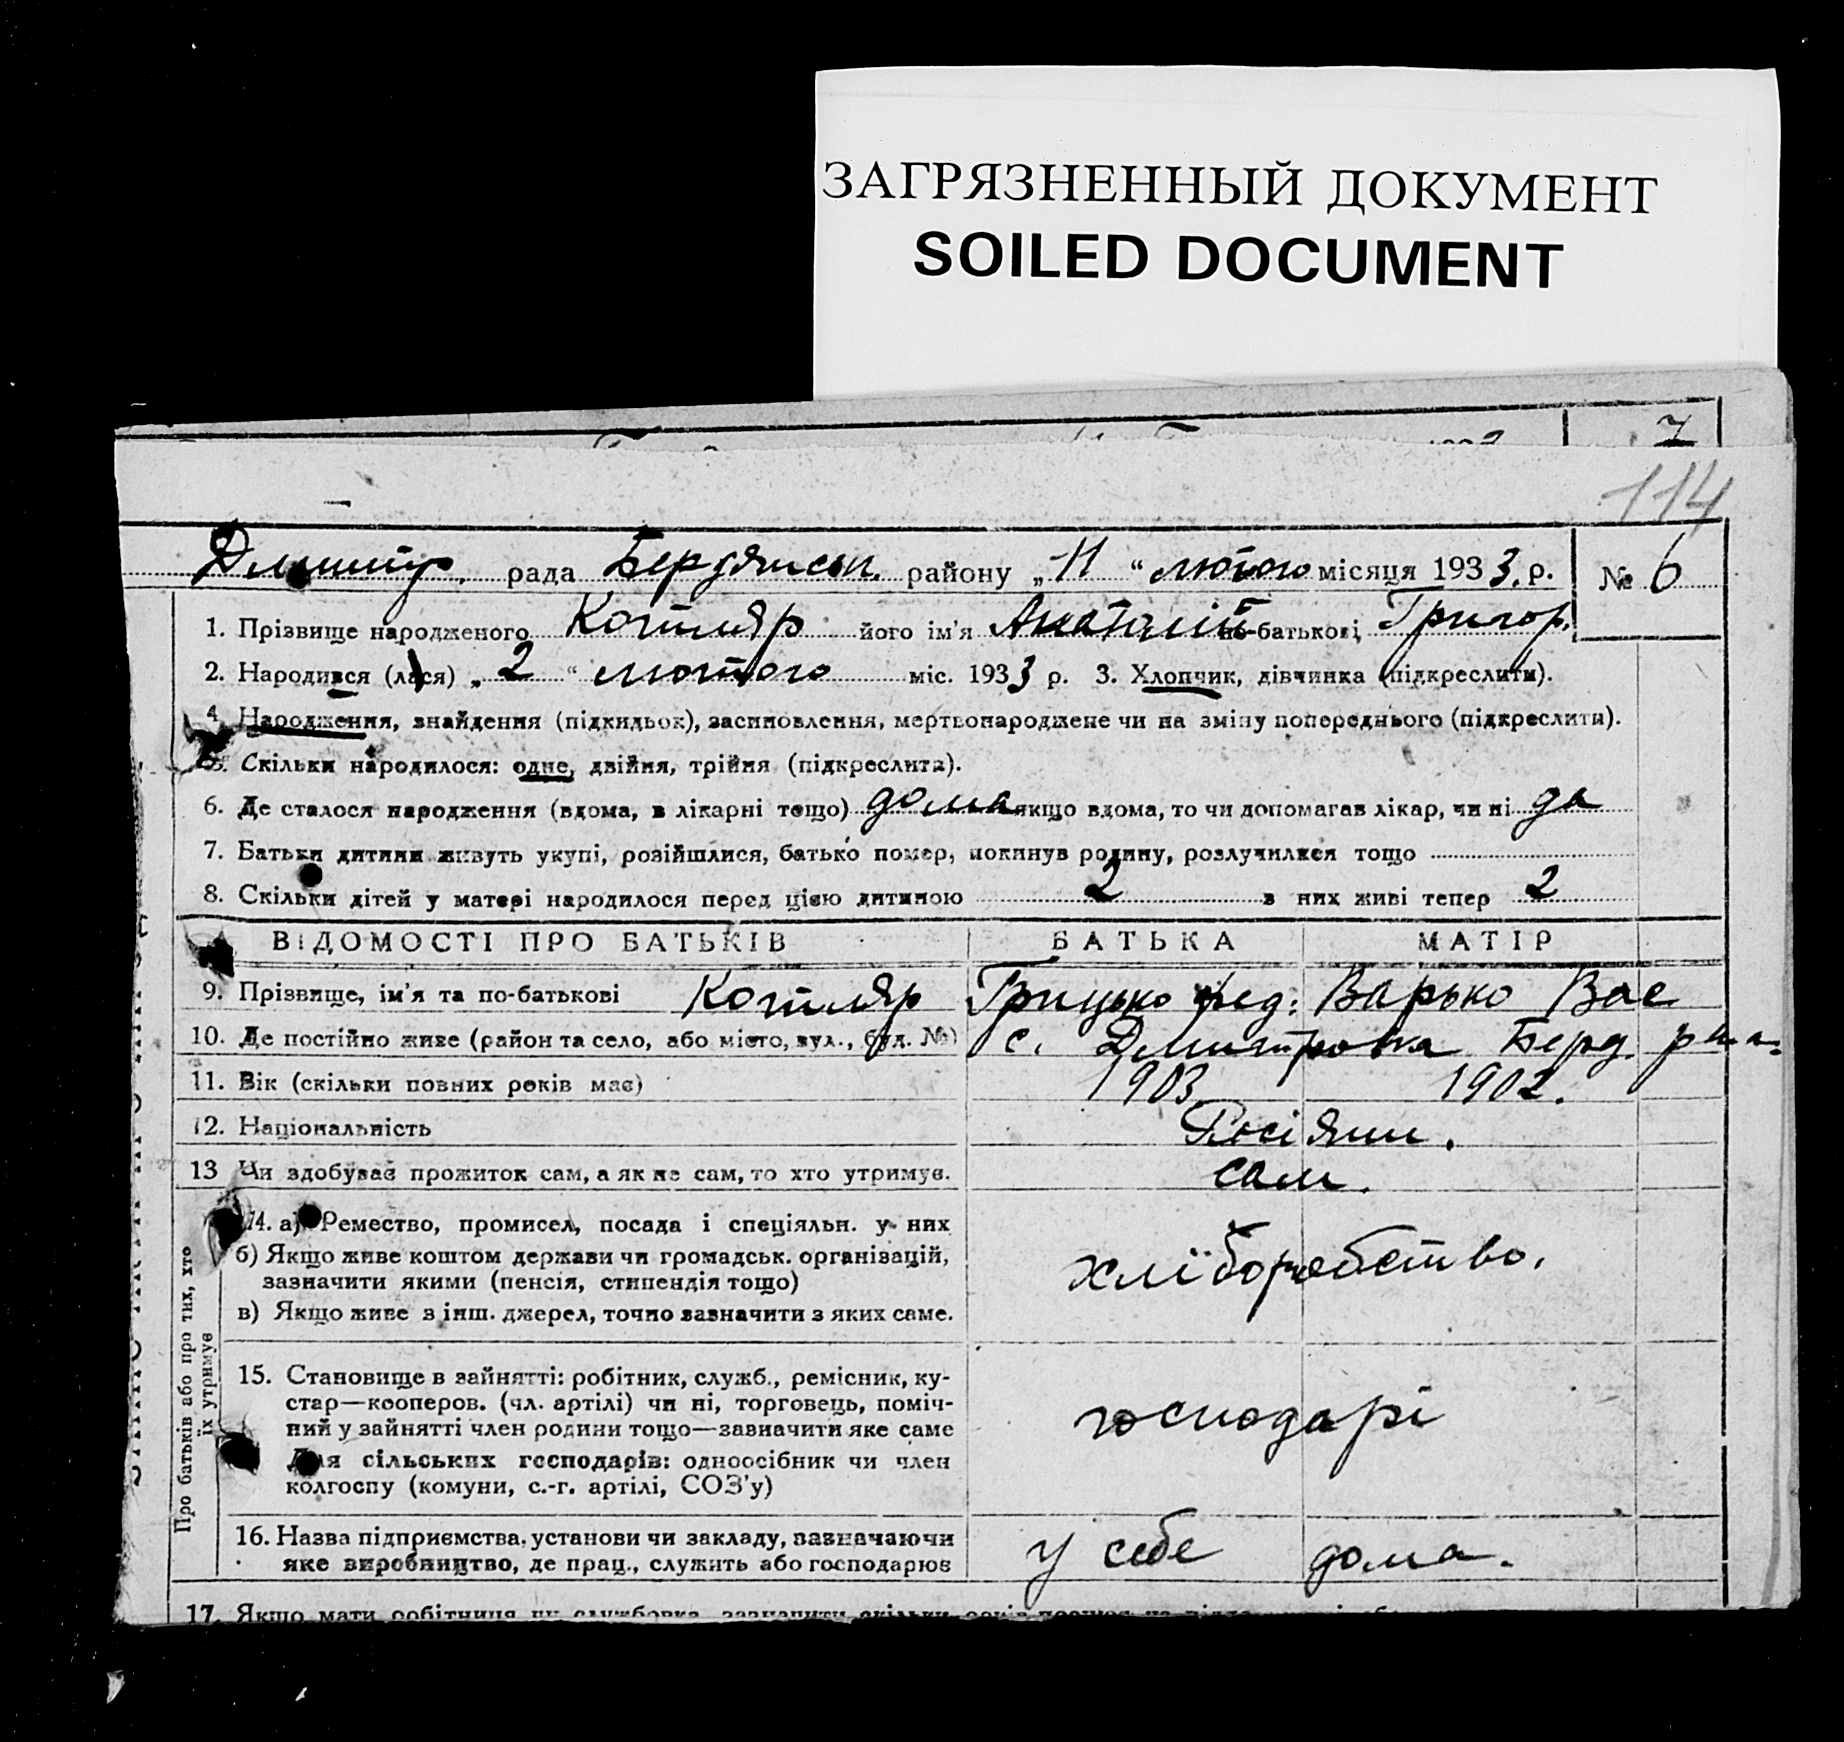 ЗАГРЯЗНЕННЫЙ ДОКУМЕНТ
SOILED DOCUMENT
7
114
Дмитр. рада Бердянськ. району „11“ лютого місяця 1933. р. № 6
1. Прізвище народженого Котляр його ім'я Анатолій по-батькові Григор.
2. Народився (лася) „2“ лютого міс. 1933 р. 3. Хлопчик, дівчинка (підкреслити).
4. Народження, знайдення (підкидьок), засиновлення, мертвонароджене чи на зміну попереднього (підкреслити).
5. Скільки народилося: одне, двійня, трійня (підкреслити).
6. Де сталося народження (вдома, в лікарні тощо) дома якщо вдома, то чи допомагав лікар, чи ні да
7. Батьки дитини живуть укупі, розійшлися, батько помер, покинув родину, розлучилися тощо
8. Скільки дітей у матері народилося перед цією дитиною 2 з них живі тепер 2
ВІДОМОСТІ ПРО БАТЬКІВ БАТЬКА МАТІР
9. Прізвище, ім'я та по-батькові Котляр Грицько Фед. Варько Вас
10. Де постійно живе (район та село, або місто, вул., буд. №) с. Дмитровка Берд. р-на.
11. Вік (скільки повних років має) 1903 1902.
12. Національність Росіяни.
13 Чи здобуває прожиток сам, а як не сам, то хто утримує. сам.
Про батьків або про тих, хто їх утримує
14. а) Ремество, промисел, посада і спеціяльн. у них
б) Якщо живе коштом держави чи громадськ. організацій,
зазначити якими (пенсія, стипендія тощо) хліборобство.
в) Якщо живе з інш. джерел, точно зазначити з яких саме.
15. Становище в зайнятті: робітник, служб., ремісник, ку-
стар—кооперов. (чл. артілі) чи ні, торговець, поміч-
ний у зайнятті член родини тощо—зазначити яке саме господарі
Для сільських господарів: одноосібник чи член
колгоспу (комуни, с.-г. артілі, СОЗ'у)
16. Назва підприємства, установи чи закладу, зазначаючи
яке виробництво, де прац., служить або господарює у себе дома.
17. Якщо мати робітниця чи службовка, зазначити скільки